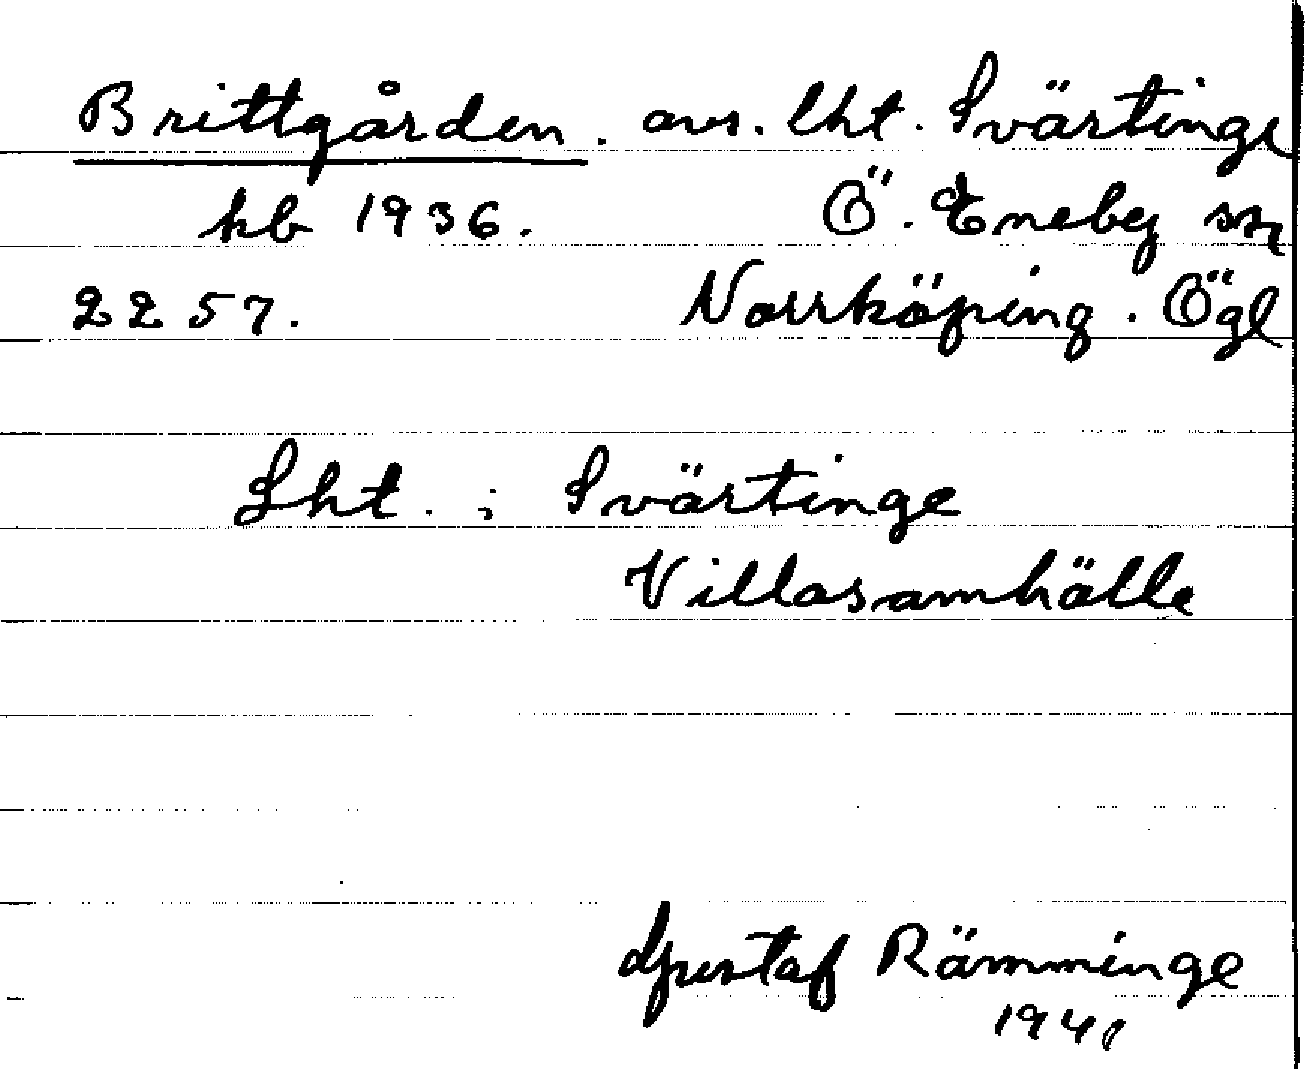 Brittgården. avs. lht. Svärtinge
kb 1936. Ö. Eneby sn
2257. Norrköping. Ögl
Lht. ; Svärtinge
Villasamhälle
Gustaf Rämminge
1941